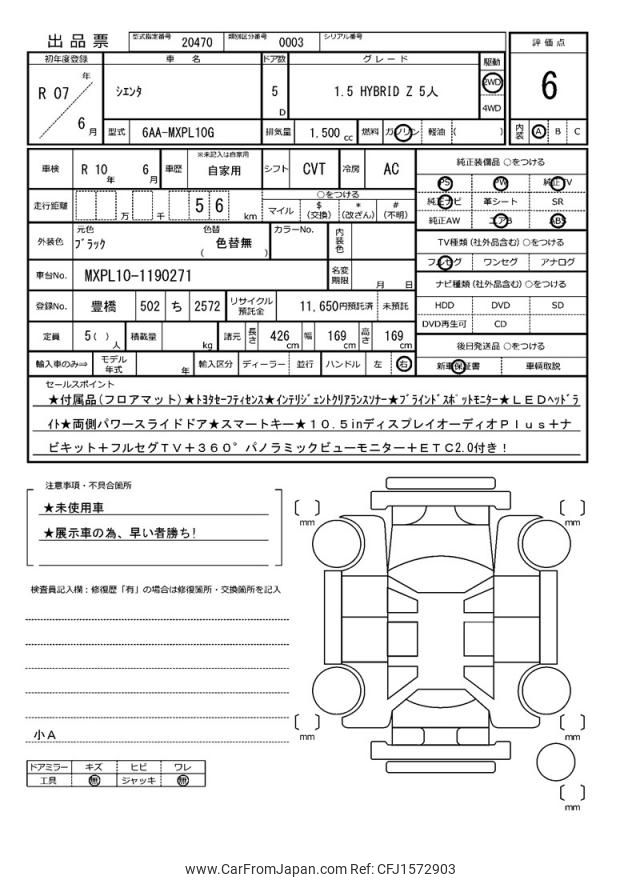 出品票
型式指定番号 20470 類別区分番号 0003 シリアル番号
評価点
6
内装 A B C
初年度登録 車名 ドア数 グレード 駆動
R 07 年 6 月 シエンタ 5 D 1.5 HYBRID Z 5人 2WD 4WD
型式 6AA-MXPL10G 排気量 1,500 cc 燃料 ガソリン 軽油 ( )
車検 R 10 年 6 月 車歴 ※未記入は自家用 自家用 シフト CVT 冷房 AC
走行距離 万 千 5 6 km
○をつける
マイル $ (交換) * (改ざん) # (不明)
外装色 元色 ブラック 色替 ( 色替無 ) カラーNo. 内装色
車台No. MXPL10-1190271 名変期限 月 日
登録No. 豊橋 502 ち 2572 リサイクル預託金 11,650円預託済 未預託
定員 5 ( ) 人 積載量 kg 諸元 長さ 426 cm 幅 169 cm 高さ 169 cm
輸入車のみ⇒ モデル年式 年 輸入区分 ディーラー 並行 ハンドル 左 右
純正装備品 ○をつける
PS PW 純正TV
純正ナビ 革シート SR
純正AW エアB ABS
TV種類 (社外品含む) ○をつける
フルセグ ワンセグ アナログ
ナビ種類 (社外品含む) ○をつける
HDD DVD SD
DVD再生可 CD
後日発送品 ○をつける
新車保証書 車輌取説
セールスポイント
★付属品(フロアマット)★トヨタセーフティセンス★インテリジェントクリアランスソナー★ブラインドスポットモニター★ＬＥＤヘッドラ
イト★両側パワースライドドア★スマートキー★１０.５inディスプレイオーディオＰｌｕｓ＋ナ
ビキット＋フルセグＴＶ＋３６０°パノラミックビューモニター＋ＥＴＣ2.0付き！
注意事項・不具合箇所
★未使用車
★展示車の為、早い者勝ち!
検査員記入欄：修復歴「有」の場合は修復箇所・交換箇所を記入
小Ａ
ドアミラー キズ ヒビ ワレ
工具 無 ジャッキ 無
mm
mm
mm
mm
mm
www.CarFromJapan.com Ref: CFJ1572903